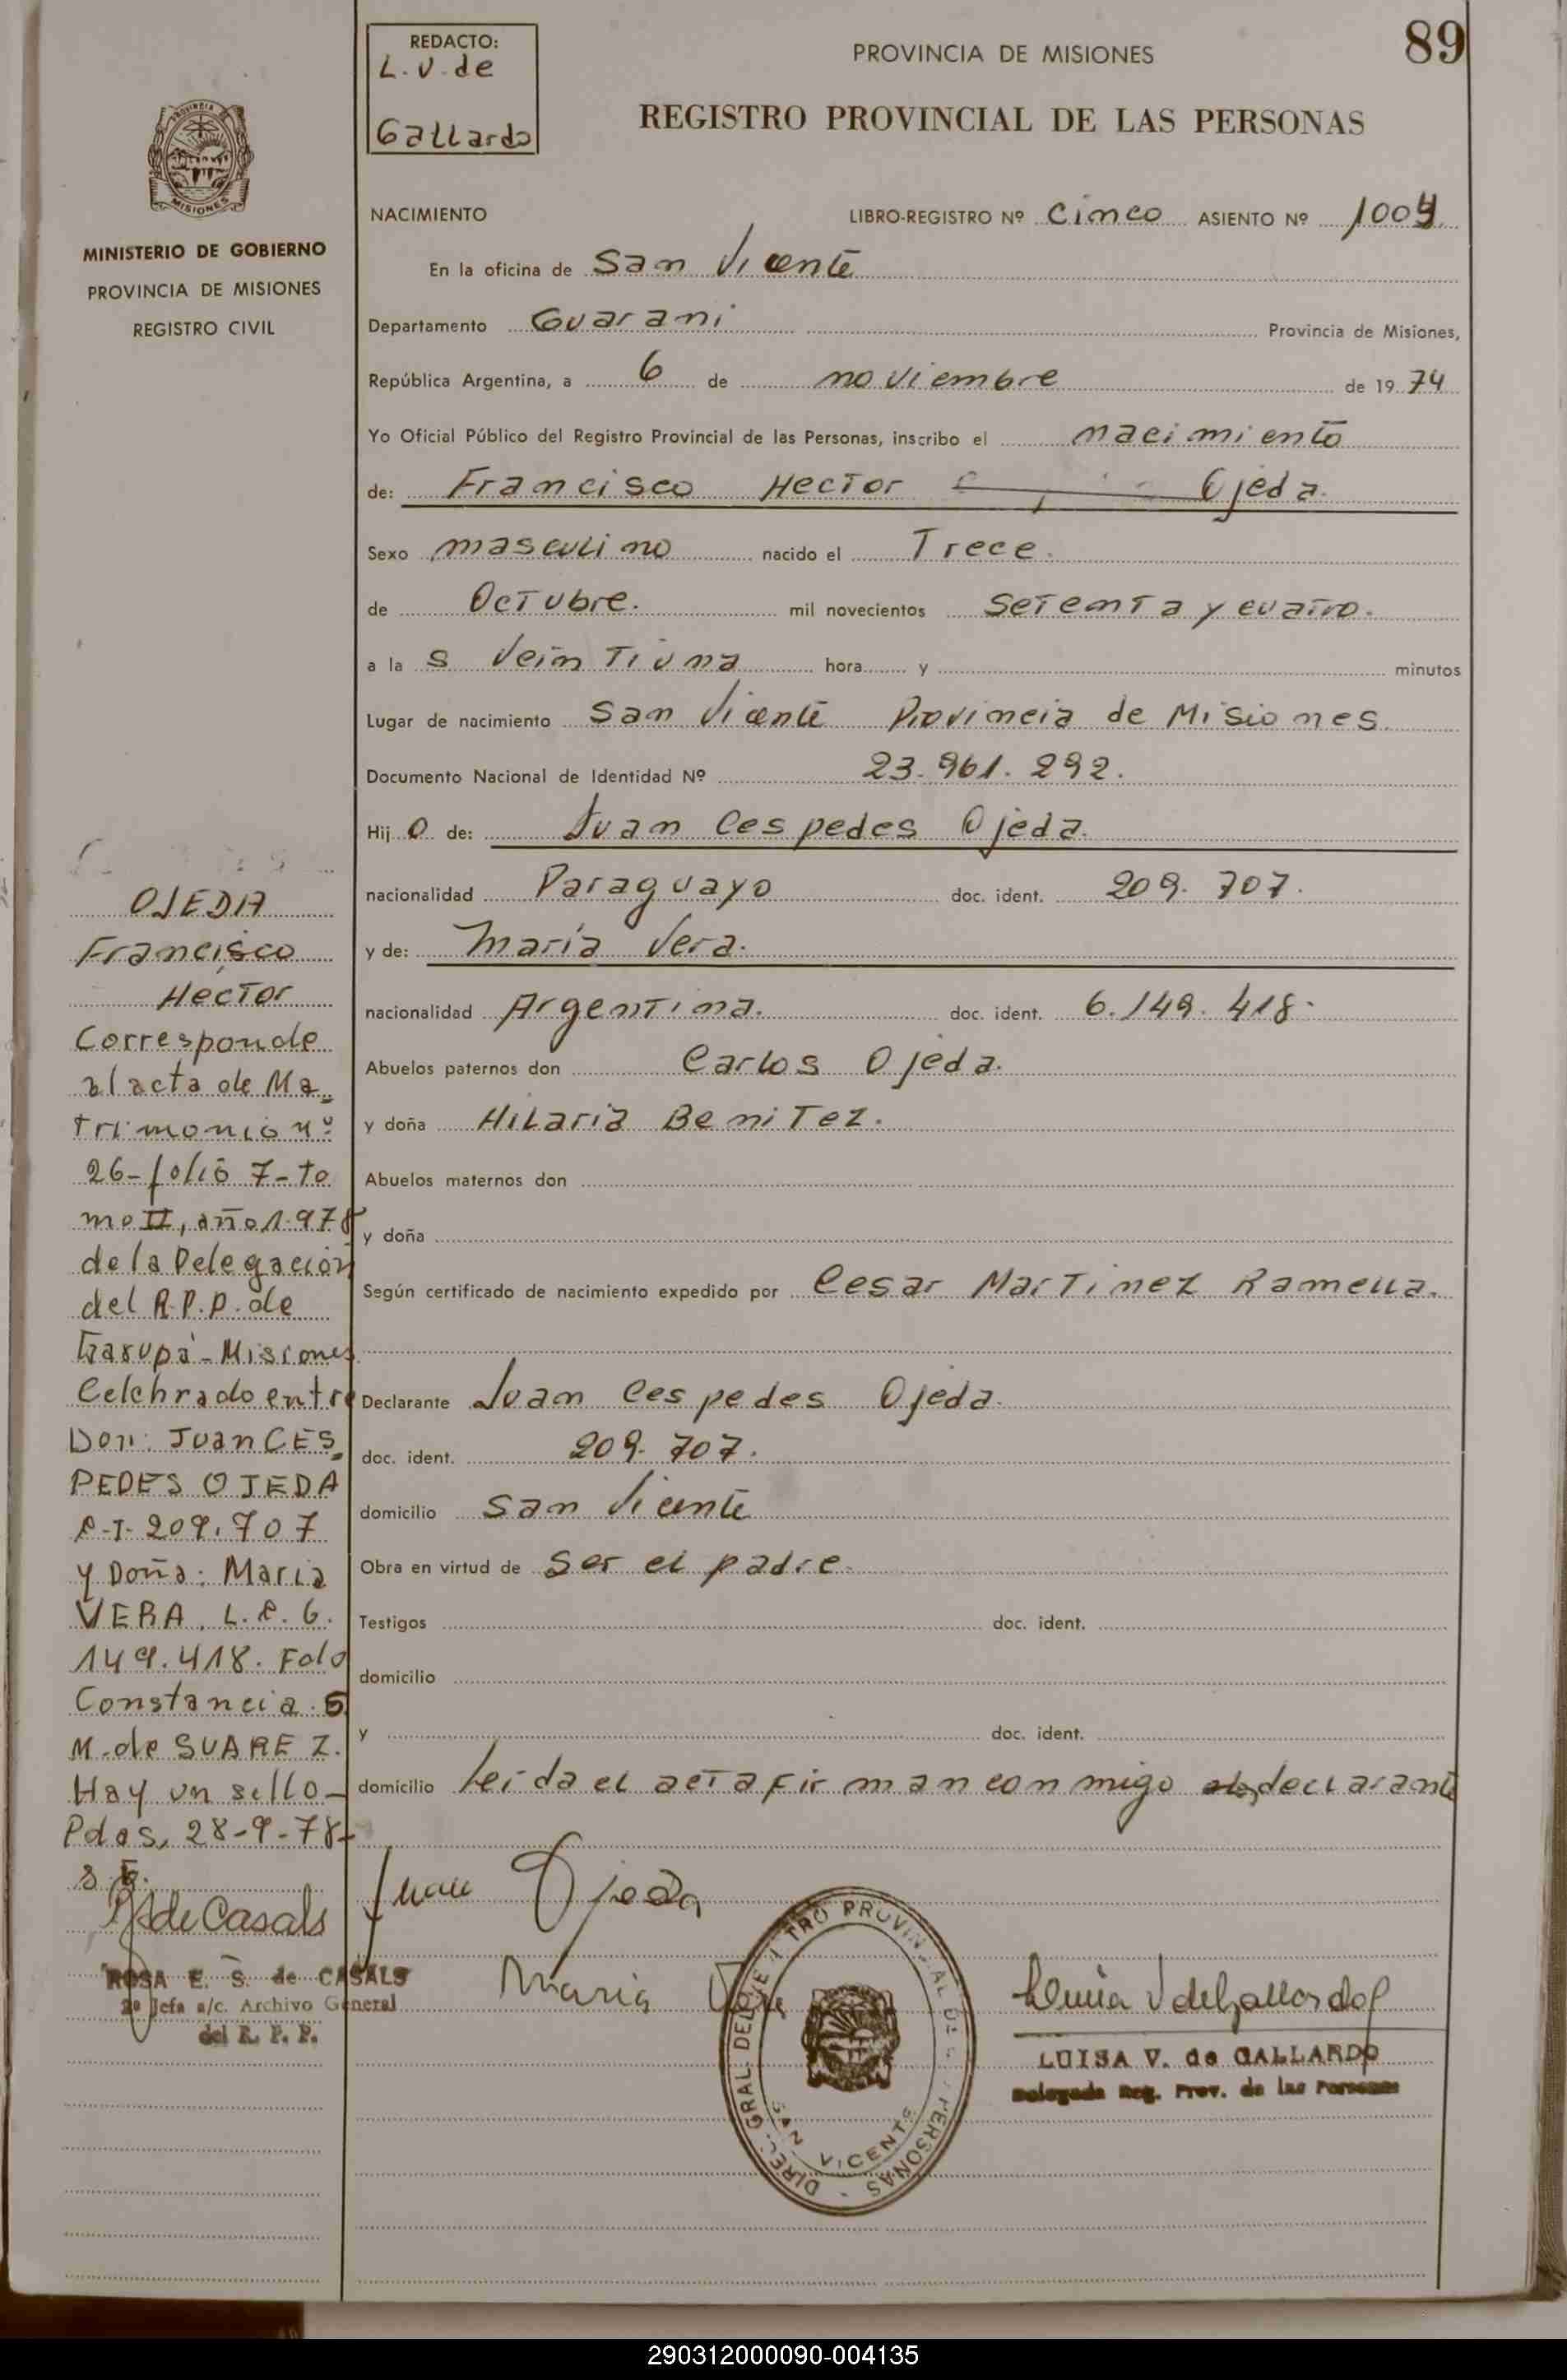 REDACTO:
L. V. de
Gallardo
PROVINCIA DE MISIONES
89
REGISTRO PROVINCIAL DE LAS PERSONAS
PROVINCIA
MISIONES
MINISTERIO DE GOBIERNO
PROVINCIA DE MISIONES
REGISTRO CIVIL
NACIMIENTO LIBRO-REGISTRO Nº Cinco ASIENTO Nº 1009
En la oficina de San Vicente
Departamento Guarani Provincia de Misiones,
República Argentina, a 6 de noviembre de 1974
Yo Oficial Público del Registro Provincial de las Personas, inscribo el nacimiento
de: Francisco Hector Ojeda.
Sexo masculino nacido el Trece.
de Octubre. mil novecientos Setenta y cuatro.
a la s Veintiuna hora y minutos
Lugar de nacimiento San Vicente Provincia de Misiones.
Documento Nacional de Identidad Nº 23.961.292.
Hij o de: Juan Cespedes Ojeda.
nacionalidad Paraguayo doc. ident. 209.707.
y de: María Vera.
nacionalidad Argentina. doc. ident. 6.149.418.
Abuelos paternos don Carlos Ojeda.
y doña Hilaria Benitez.
Abuelos maternos don
y doña
Según certificado de nacimiento expedido por Cesar Martinez Ramella.
Declarante Juan Cespedes Ojeda.
doc. ident. 209.707.
domicilio San Vicente
Obra en virtud de ser el padre.
Testigos doc. ident.
domicilio
y doc. ident.
domicilio leida el acta firman conmigo declarante
Juan Ojeda
Maria
LUISA V. de GALLARDO
Delegada Reg. Prov. de las Personas
SAN VICENTE
OJEDA
Francisco
Hector
Corresponde
al acta de Ma_
trimonio nº
26-folio 7-to
mo II, año 1.978
de la Delegación
del R.P.P. de
Garupá-Misiones
Celebrado entre
Don: Juan CES_
PEDES OJEDA
C.I. 209.707
y Doña: Maria
VERA, L.C. 6.
149.418. Fdo
Constancia S
M. de SUAREZ.
Hay un sello-
Pdas, 28-9-78-
de Casals
ROSA E. S. de CASALS
2ª Jefa a/c. Archivo General
del R. P. P.
290312000090-004135